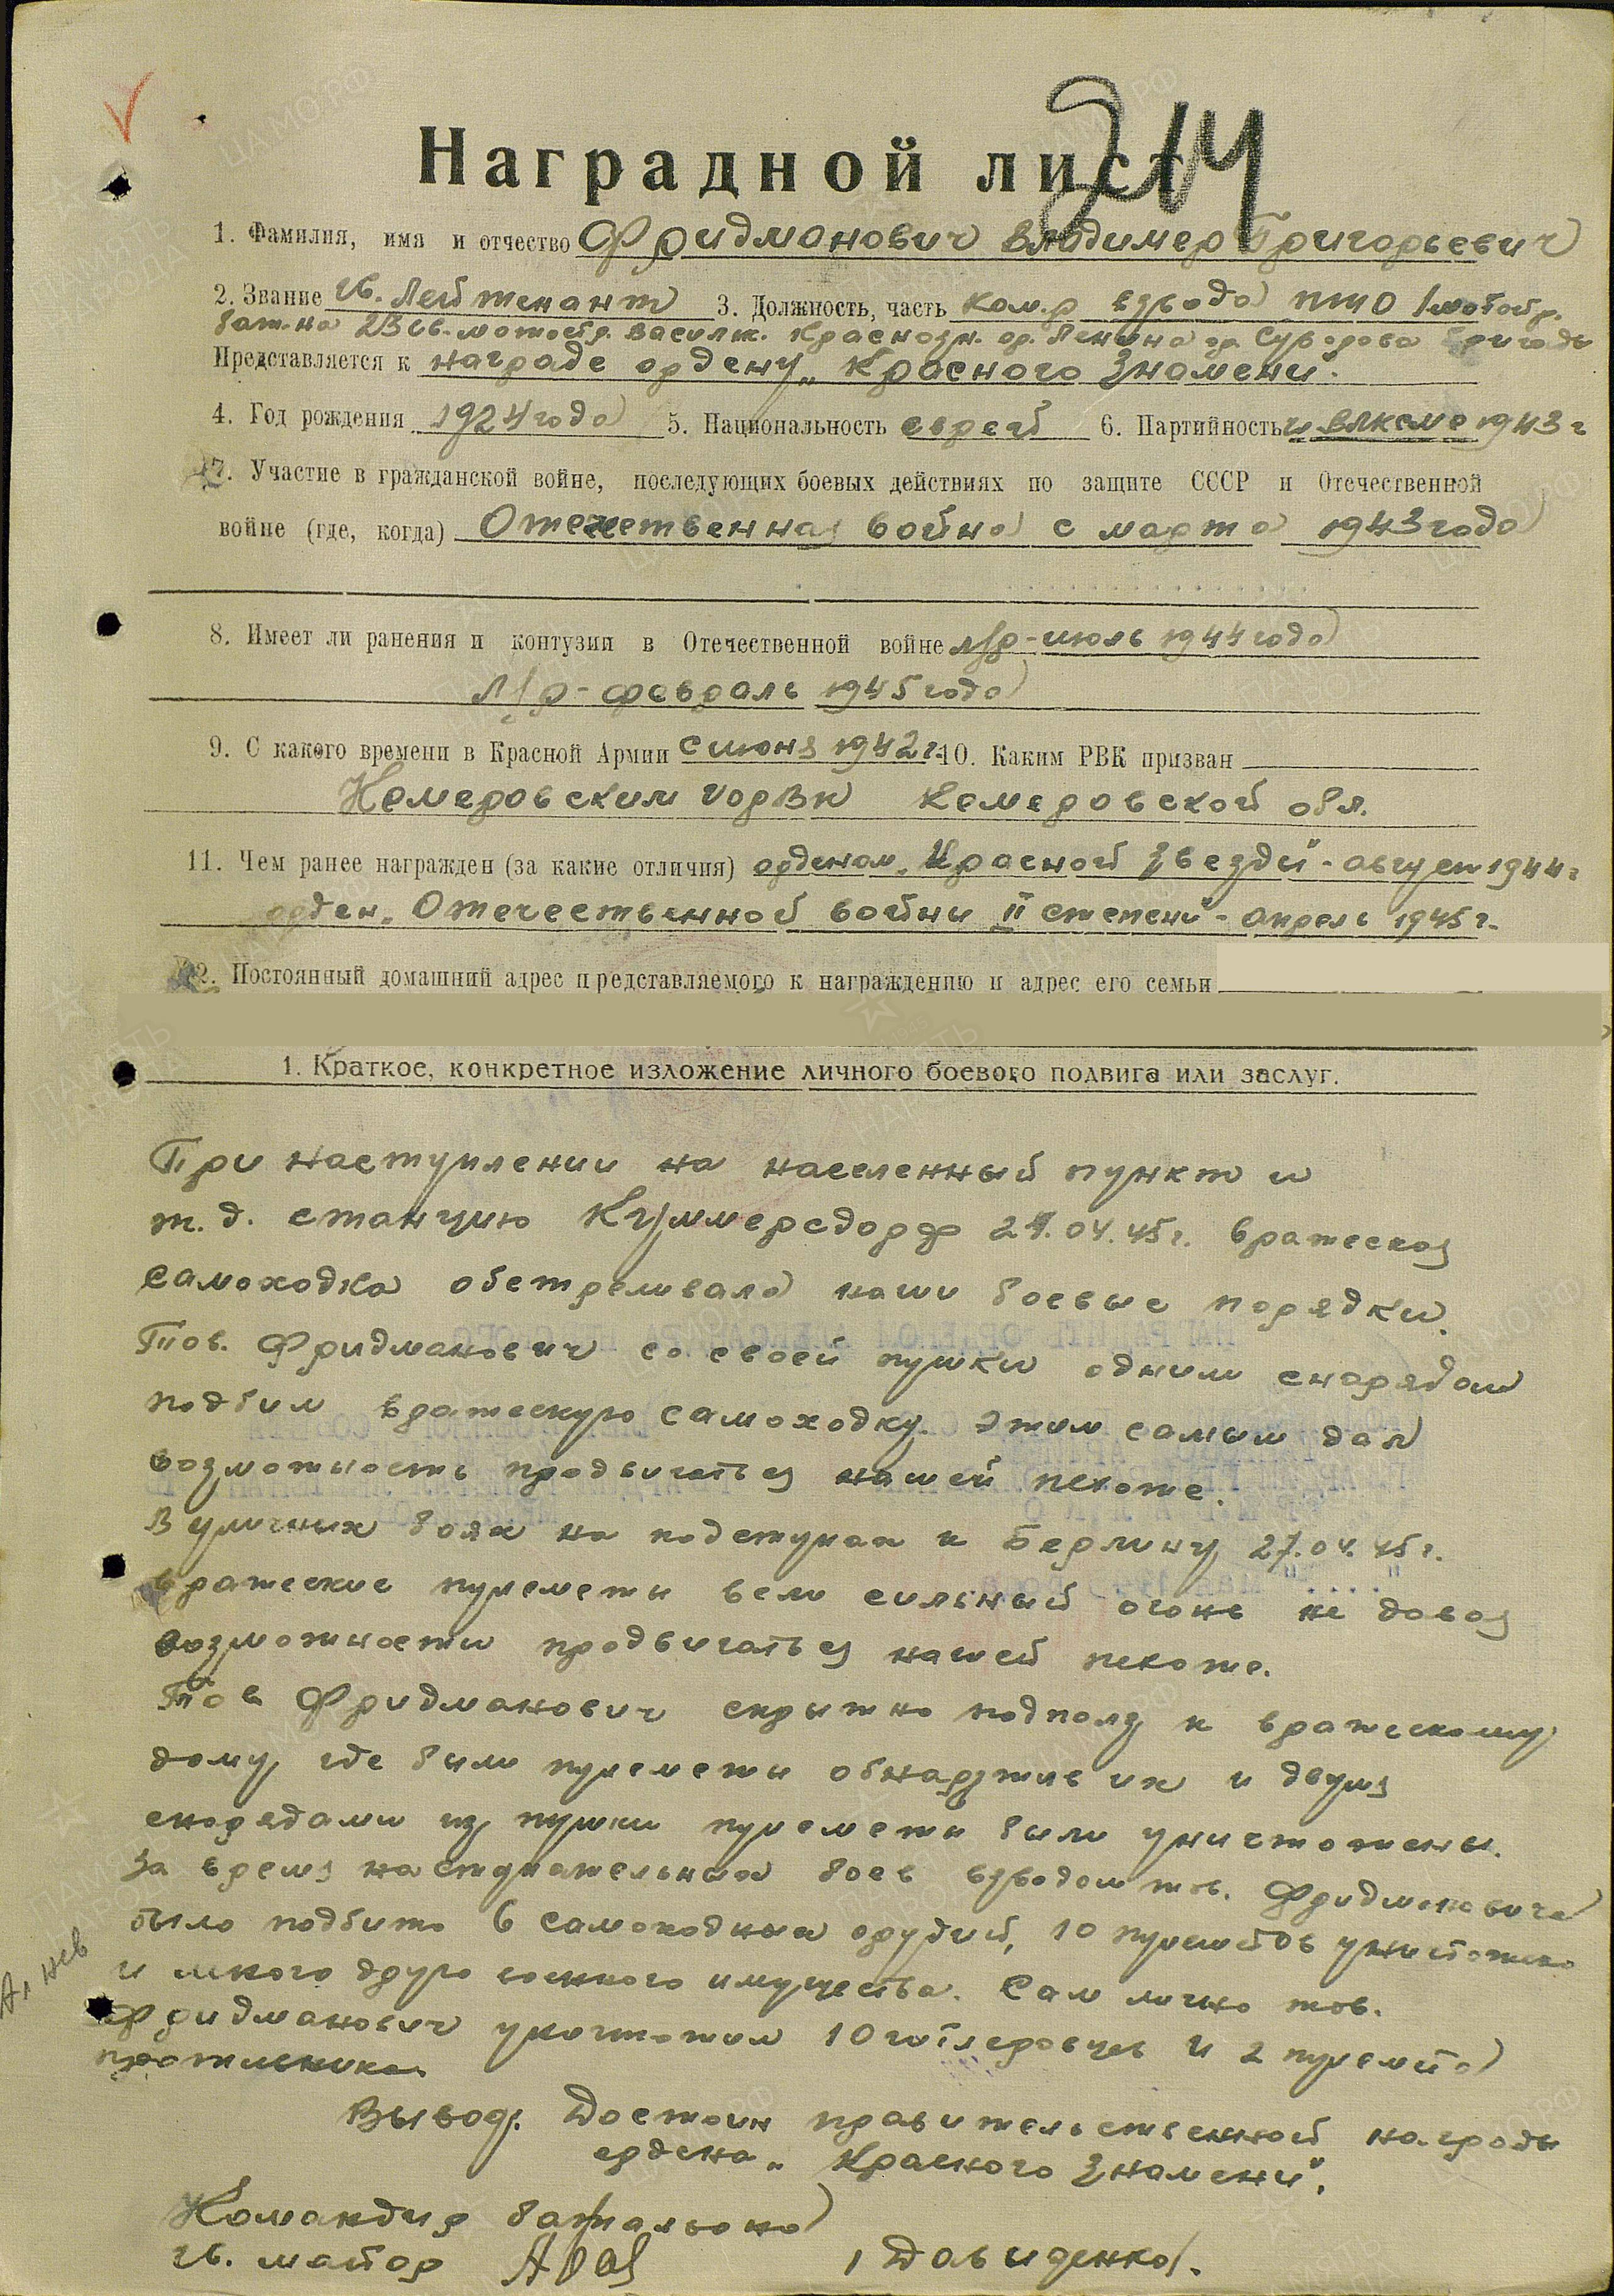 214
Наградной лист
1. Фамилия, имя и отчество Фридманович Владимер Григорьевич
2. Звание гв. Лейтенант 3. Должность, часть ком-р взвода ПТО 1 мотостр.
бат-на 23 гв. мотостр. Васильк. Краснозн. ор. Ленина ор. Суворова бригады
Представляется к награде ордену „Красного Знамени".
4. Год рождения 1924 года 5. Национальность еврей 6. Партийность чл. ВЛКСМ с 1943 г
7. Участие в гражданской войне, последующих боевых действиях по защите СССР и Отечественной
войне (где, когда) Отечественная война с марта 1943 года
8. Имеет ли ранения и контузии в Отечественной войне л/р - июль 1944 года
л/р - февраль 1945 года
9. С какого времени в Красной Армии с июня 1942 г. 10. Каким РВК призван
Кемеровским ГорВК Кемеровской обл.
11. Чем ранее награжден (за какие отличия) орденом „Красной Звезды" - август 1944 г
орден „Отечественной войны II степени" - апрель 1945 г.
12. Постоянный домашний адрес представляемого к награждению и адрес его семьи
1. Краткое, конкретное изложение личного боевого подвига или заслуг.
При наступлении на населенный пункт и
ж.д. станцию Куммерсдорф 21.04.45г. вражеская
самоходка обстреливала наши боевые порядки.
Тов. Фридманович со своей пушки одним снарядом
подбил вражескую самоходку. Этим самым дал
возможность продвигаться нашей пехоте.
В уличных боях на подступах к Берлину 27.04.45г.
вражеские пулеметы вели сильный огонь не давая
возможности продвигаться нашей пехоте.
Тов Фридманович скрытно подполз к вражескому
дому, где были пулеметы обнаружив их и двумя
снарядами из пушки пулеметы были уничтожены.
За время наступательных боев взводом тов. Фридмановича
было подбито 6 самоходных орудий, 10 пулеметов уничтожено
и много друго военного имущества. Сам лично тов.
Фридманович уничтожил 10 гитлеровцев и 2 пулемета
противника
Вывод. Достоин правительственной награды
ордена „Красного Знамени".
Командир батальона
гв. майор
/Давиденко/.
Ал нев